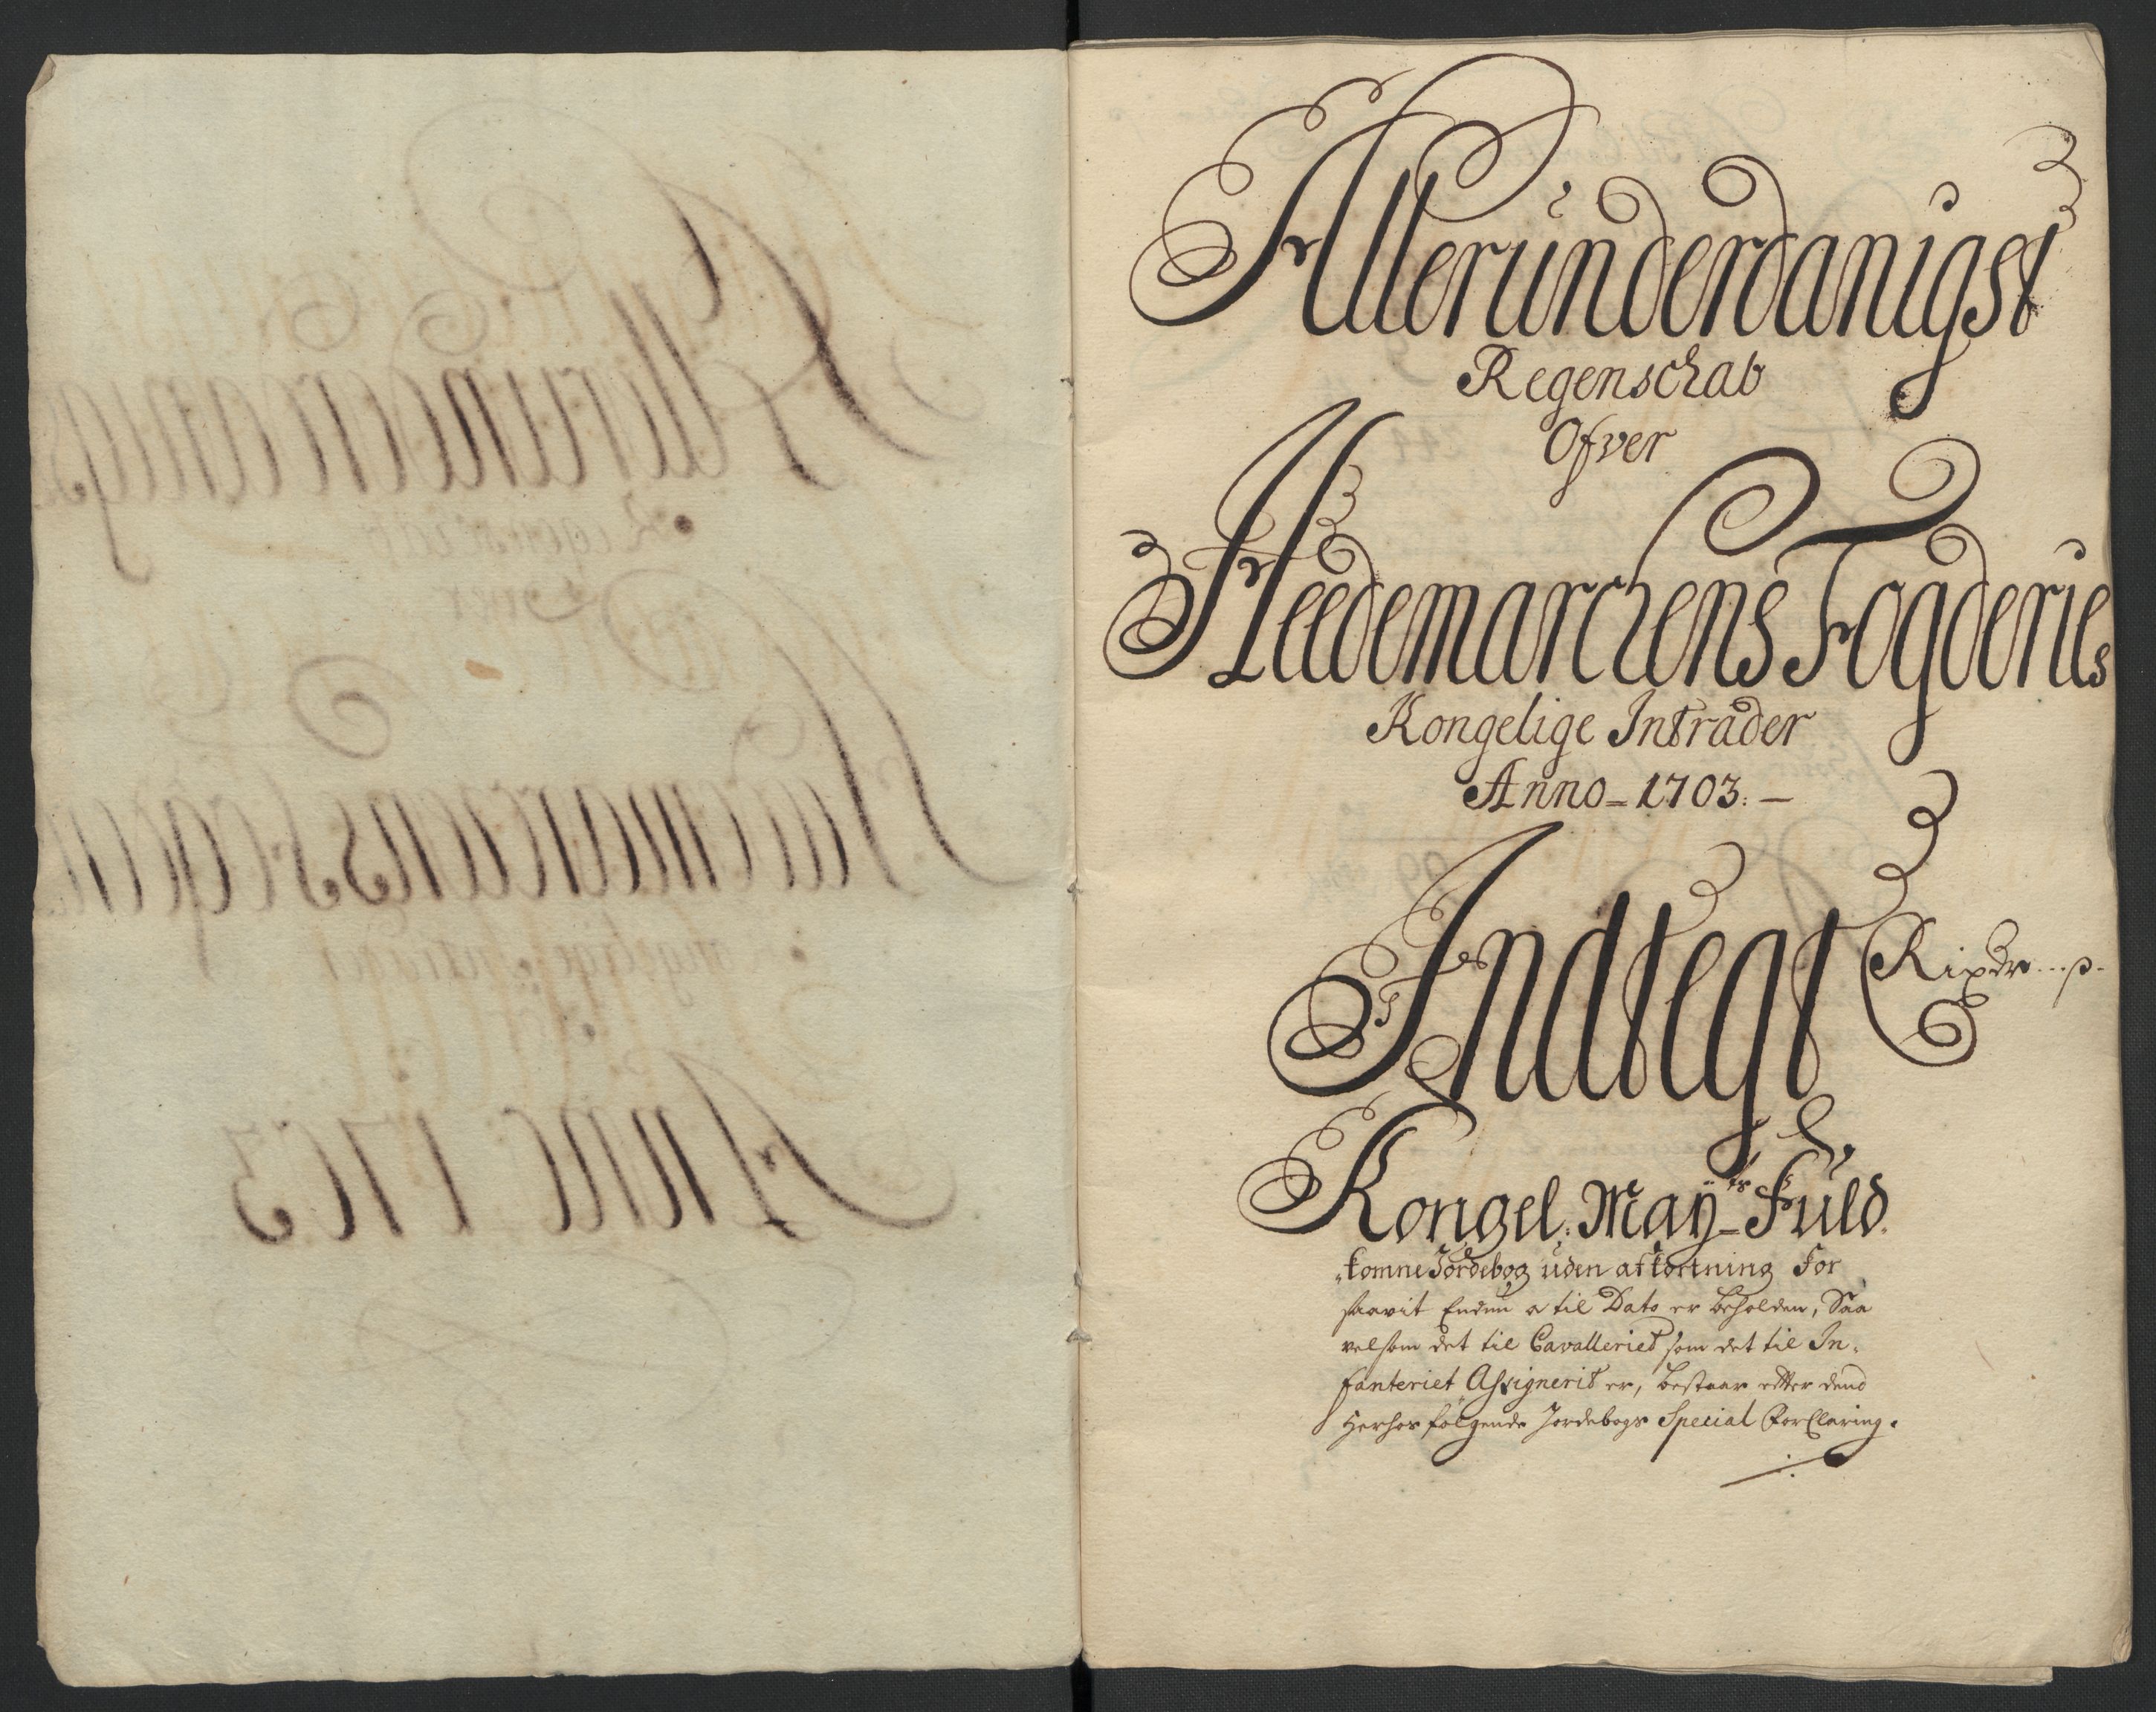 Allerunderdanigst
Regenschab
Ofver
Heedemarchens Fogderies
Kongelige Intrader
Anno - 1703. -
Indtegt Rixdr ... s.
Kongel: Maÿts Fuld
komne Jordebog uden afkortning For
saavit Endnu a til Dato er beholden, Saa
velsom det til Cavalleriet som det til In,
fanteriet Assignerit er, bestaar efter dend
Herhos følgende Jordebogs Special Forclaring.